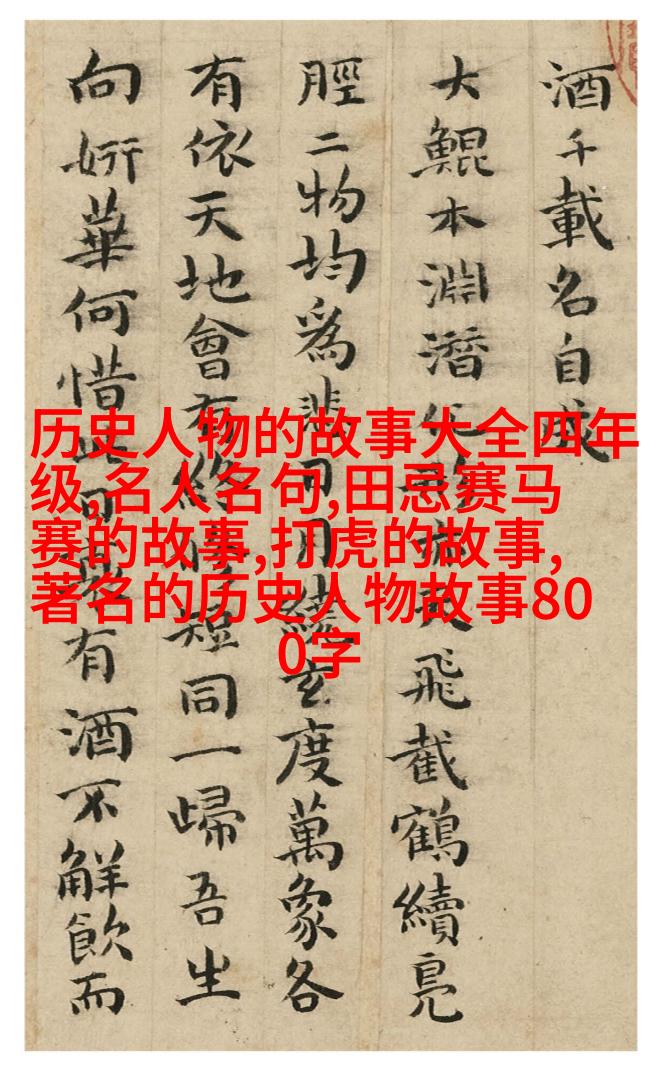 酒千載名自
大鯤本淵潛化飛截鶴續鳧
脛二物均為悲日月繞玄度萬象各
有依天地會有終短同一歸吾生
向妍華何惜此有酒不解飲而
历史人物的故事大全四年
级,名人名句,田忌赛马
赛的故事,打虎的故事,
著名的历史人物故事80
0字